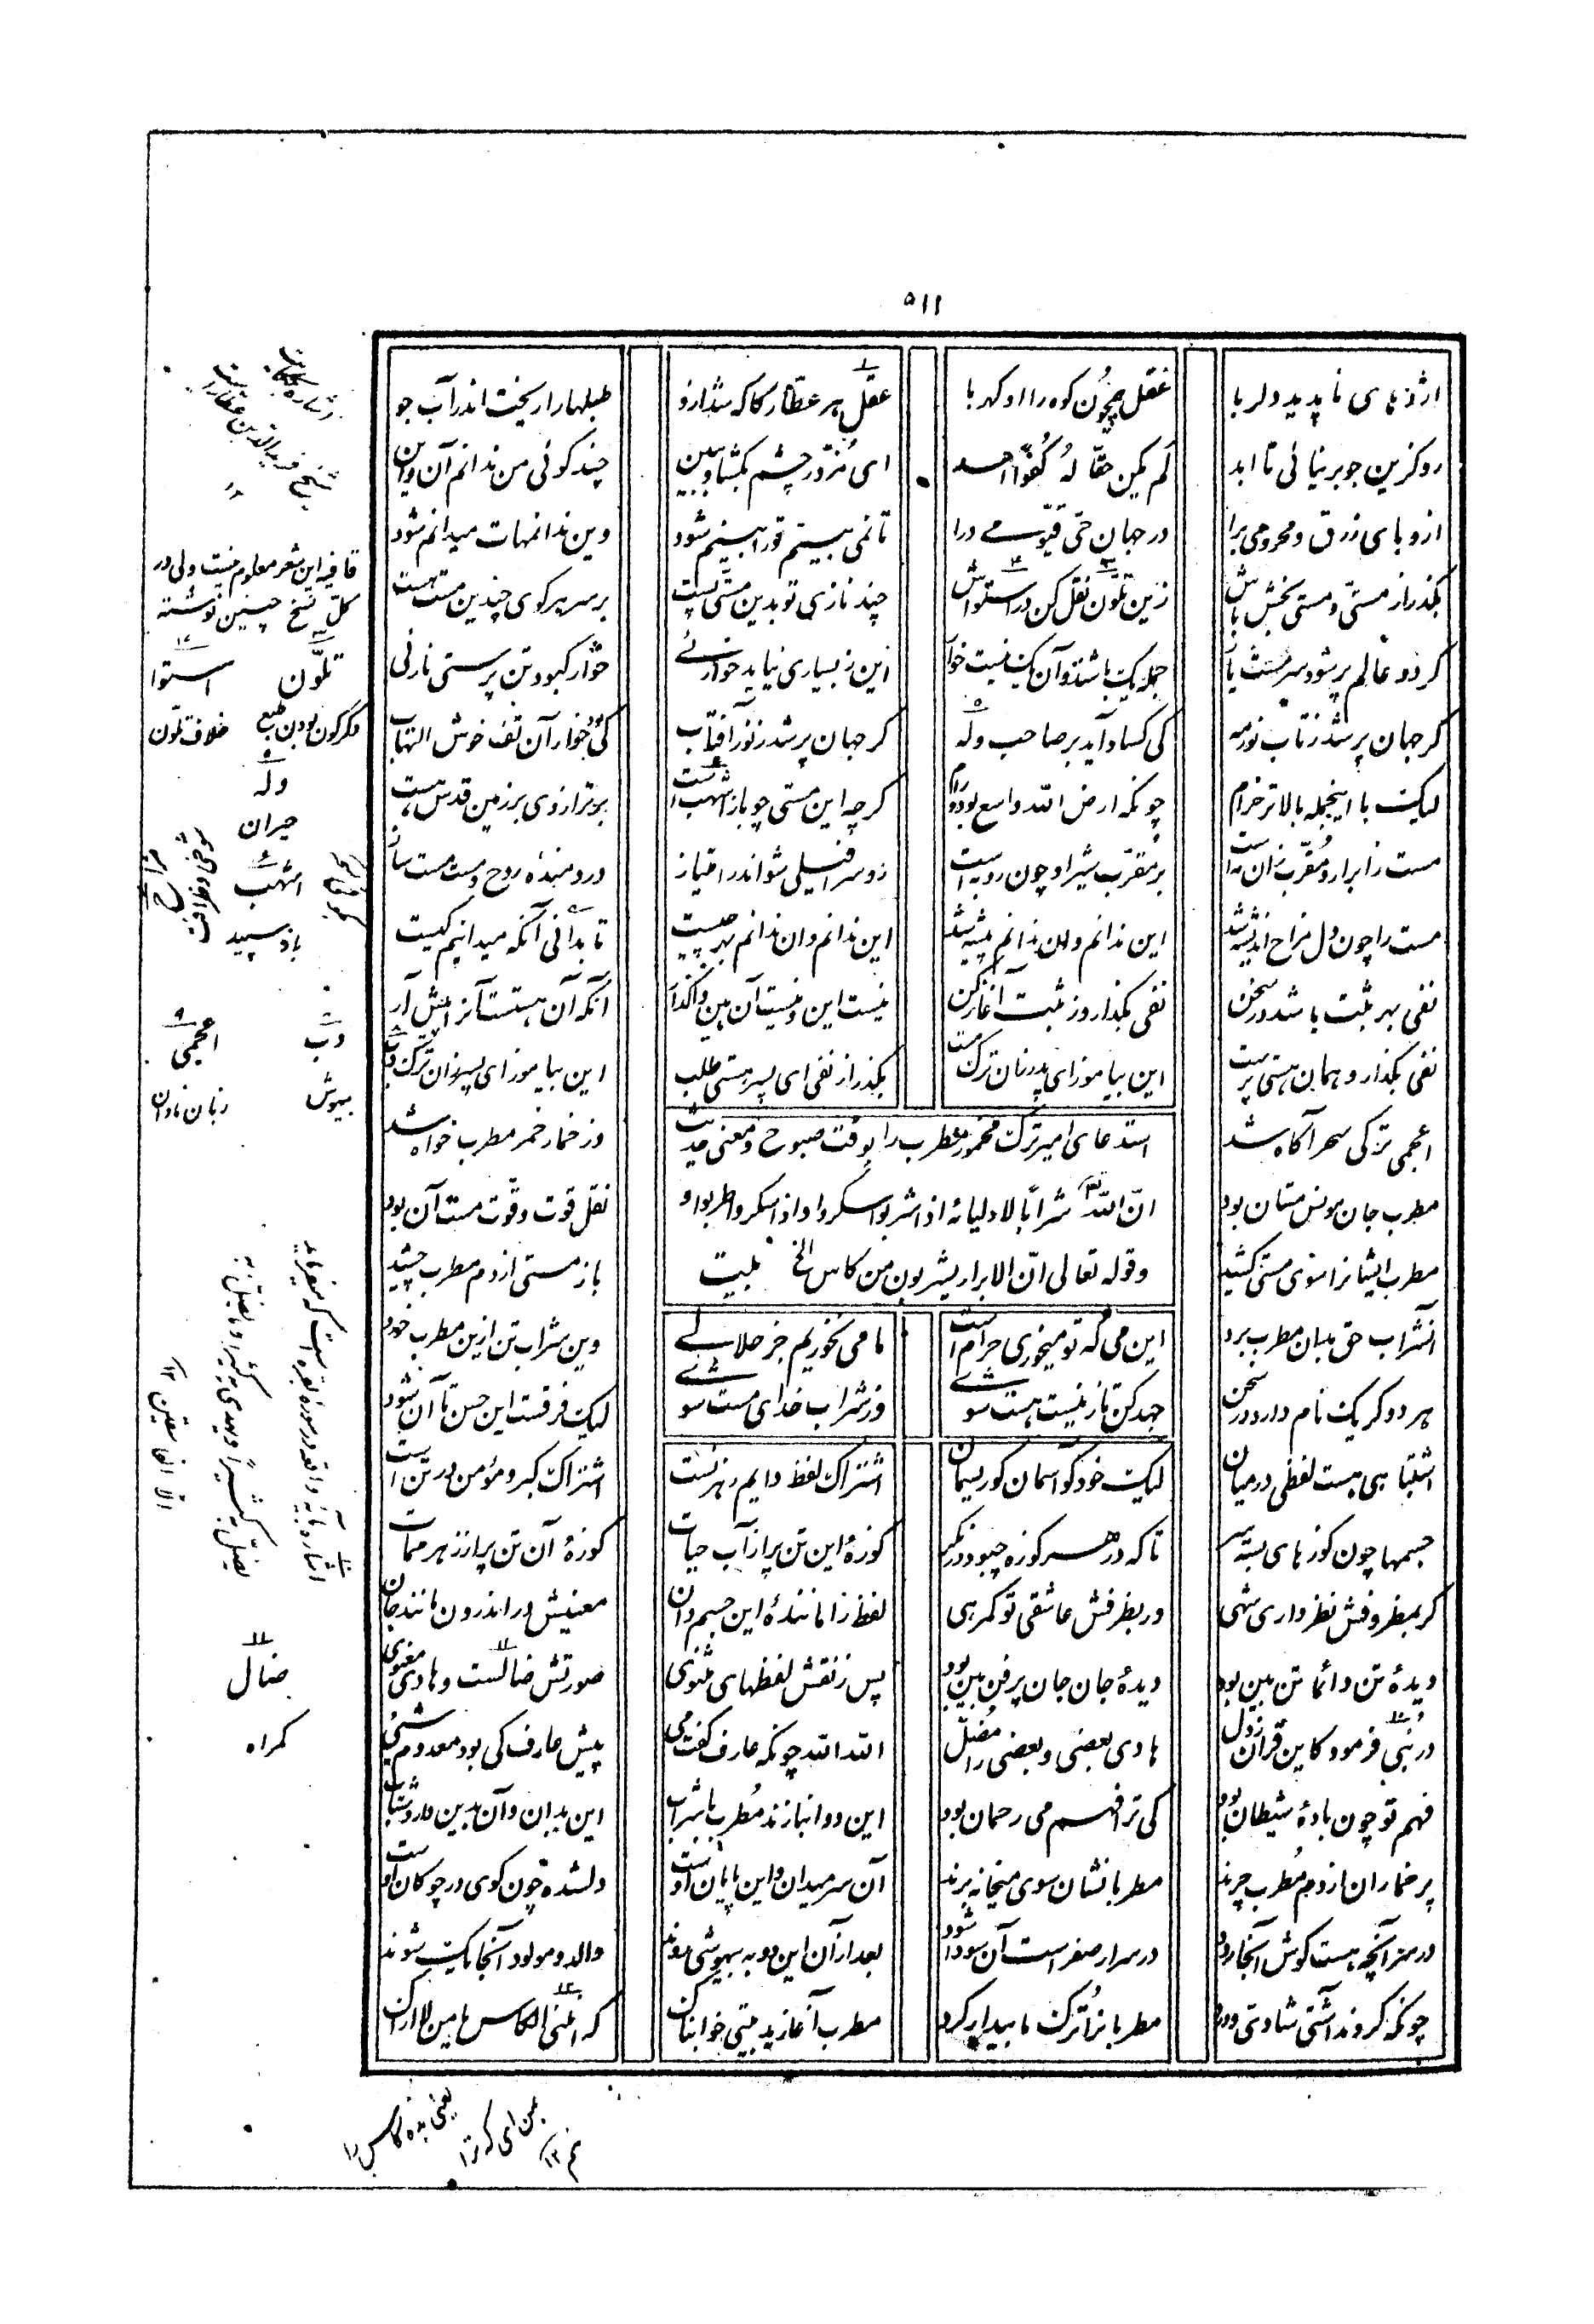 ۵۱۱
اژدهای ناپدید دلربا
عقل همچون کوه را او کهربا
عقل هر عطار کاکه شد ازو
طبلها را ریخت اندر آب جو
رو کزین جو بر نیائی تا ابد
لم یکن حقّا لهٗ کُفوًا احد
ای مُزوّر چشم بکشا و ببین
چند کوئی من ندانم آن و این
از وبای زرق و محرومی برا
در جهان حیّ قیّومی درا
تا نمی بینم تو را بینم شود
وین ندانمهات میدانم شود
بکذر از مستی و مستی بخش باش
زین تلوّن نقل کن در استواش
چند نازی تو بدین مستی پست
بر سر هر کوی چندین مست هست
کر دو عالم پر شود سرمست یار
جمله یک باشند و آن یک نیست خوار
این ز بسیاری نیابد خوارئی
خوار کبود تن پرستی نارئی
کر جهان پر شد ز تاب نور مه
کی کساد آید بر صاحب وله
کر جهان پر شد ز نور آفتاب
کی بود خوار آن تف خوش التهاب
لیک با اینجمله بالاتر خرام
چونکه ارض الله واسع بود و رام
کرچه این مستی چو باز اشهب است
برتر از وی بر زمین قدس هست
مست ز ابرار و مُقرّب زان به است
بر مقرّب شیر او چون روبه است
رو سرافیلی شو اندر امتیاز
در دمندهٔ روح و مست مست ساز
مست را چون دل مزاح اندیشه شد
این ندانم وان ندانم پیشه شد
این ندانم وان ندانم بهر چیست
تا بدانی آنکه میدانیم کیست
نفی بهر ثبت باشد در سخن
نفی بکذار و ز ثبت آغاز کن
نیست این و نیست آن هین واکذار
آنکه آن هستست آنرا پیش آر
نفی بکذار و همان هستی پرست
این بیاموز ای پدر زان ترک مست
بکذر از نفی ای پسر هستی طلب
این بیاموز ای پسر زان ترک دب
استدعای امیر ترک مخمور مطرب را بوقت صبوح و معنی حدیث
انّ الله شرابًا لاولیائه اذا شربوا سکروا و اذا سکروا طربوا و
و قوله تعالی انّ الابرار یشربون من کاس الخ بیت
این می که تو میخوری حرام است
ما می نخوریم جز حلالی
جهد کن تا ز نیست هست شوی
وز شراب خدای مست شوی
اعجمی ترکی سحر آکاه شد
وز خمار خمر مطرب خواه شد
مطرب جان مونس مستان بود
نقل قوت و قوّت مست آن بود
مطرب ایشانرا سوی مستی کشید
باز مستی از دم مطرب چشید
آنشراب حق بدان مطرب برد
وین شراب تن ازین مطرب خورد
هر دو کر یک نام دارد در سخن
لیک فرقست این حسن تا آن
اشتباهی هست لفظی در میان
لیک خود کو آسمان کو ریسمان
اشتراک لفظ دایم رهزنست
اشتراک کبر و مؤمن در تن است
جسمها چون کوزهای بسته سر
تا که در هر کوزه چبود در نکر
کوزهٔ این تن پر از آب حیات
کوزهٔ آن تن پر از زهر ممات
کر بمظروفش نظر داری شهی
ور بظرفش عاشقی تو کمرهی
لفظ را مانندهٔ این جسم دان
معنیش در اندرون مانند جان
دیدهٔ تن دائما تن بین بود
دیدهٔ جان جان پر فن بین بود
پس ز نقش لفظهای مثنوی
صورتش ضالست و هادی معنوی
در نُبی فرمود کاین قران ز دل
هادی بعضی و بعضی را مُضلّ
الله الله چونکه عارف کفت می
پیش عارف کی بود معدوم شیء
فهم تو چون بادهٔ شیطان بود
کی ترا فهم می رحمان بود
این دو انبازند مُطرب با شراب
این بدان و آن بدین دارد شتاب
پر خماران از دم مُطرب چرند
مطربانشان سوی میخانه برند
آن سر میدان و این پایان اوست
دلشده چون کوی در چوکان اوست
در سر آنچه هست کوش آنجا رود
در سر ار صفراست آن سودا شود
بعد از آن این دو به بیهوشی روند
والد و مولود آنجا یک شوند
چونکه کردند آشتی شادی و درد
مطربانرا تُرک ما بیدار کرد
مطرب آغازید بیتی خوابناک
که انلنی الکاس یا من لا اراک
شیخ فریدالدین عطار
قافیه این شعر معلوم نیست ولی در
کل نسخ چنین نوشته
تلوّن
دکرکون بودن طبع
استوا
خلاف تلون
وله
حیران
اشهب
باز سپید
شوخی و ظرافت
دب
بیهوش
اعجمی
زبان نادان
اشاره بآیهٔ واقعه در سورهٔ بقره است که میفرماید
یضلّ به کثیراً و یهدی به کثیراً و ما یضلّ به
الّا الفاسقین ۱۲
ضال
کمراه
یعنی بده کاس را
بمن ای که ترا